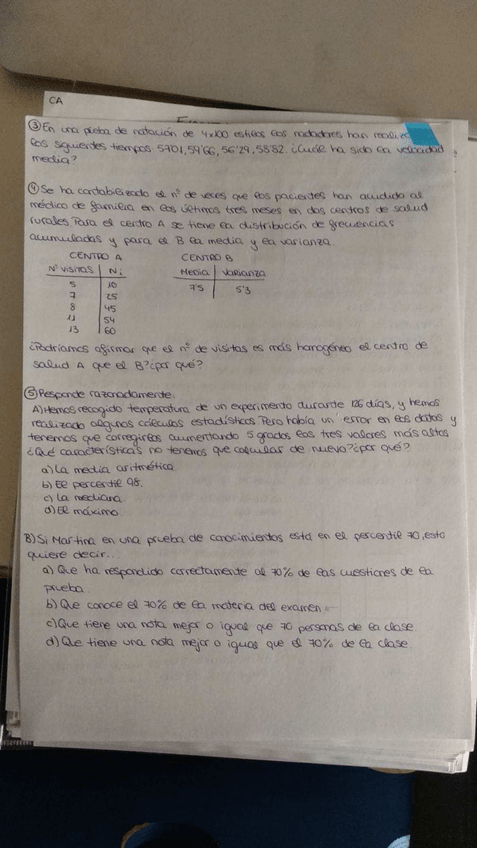 CA
③ En una prueba de natación de 4x100 estilos los nadadores han
los siguientes tiempos 57'01, 59'66, 56'29, 58'82. ¿Cuál ha sido la velocidad
media?
④ Se ha contabilizado el nº de veces que los pacientes han acudido al
médico de familia en los últimos tres meses en dos centros de salud
rurales. Para el centro A se tiene la distribución de frecuencias
acumuladas y para el B la media y la varianza.
CENTRO A CENTRO B
Nº VISITAS Ni Media Varianza
5 10 7'5 5'3
7 25
8 45
11 54
13 60
¿Podríamos afirmar que el nº de visitas es más homogéneo el centro de
salud A que el B? ¿por qué?
⑤ Responde razonadamente:
A) Hemos recogido temperatura de un experimento durante 126 días, y hemos
realizado algunos cálculos estadísticos. Pero había un error en los datos y
tenemos que corregirlos aumentando 5 grados los tres valores más altos
¿Qué características no tenemos que calcular de nuevo? ¿por qué?
a) La media aritmética.
b) El percentil 98.
c) La mediana.
d) El máximo.
B) Si Martina en una prueba de conocimientos está en el percentil 70, esto
quiere decir...
a) Que ha respondido correctamente al 70% de las cuestiones de la
prueba.
b) Que conoce el 70% de la materia del examen.
c) Que tiene una nota mejor o igual que 70 personas de la clase.
d) Que tiene una nota mejor o igual que el 70% de la clase.